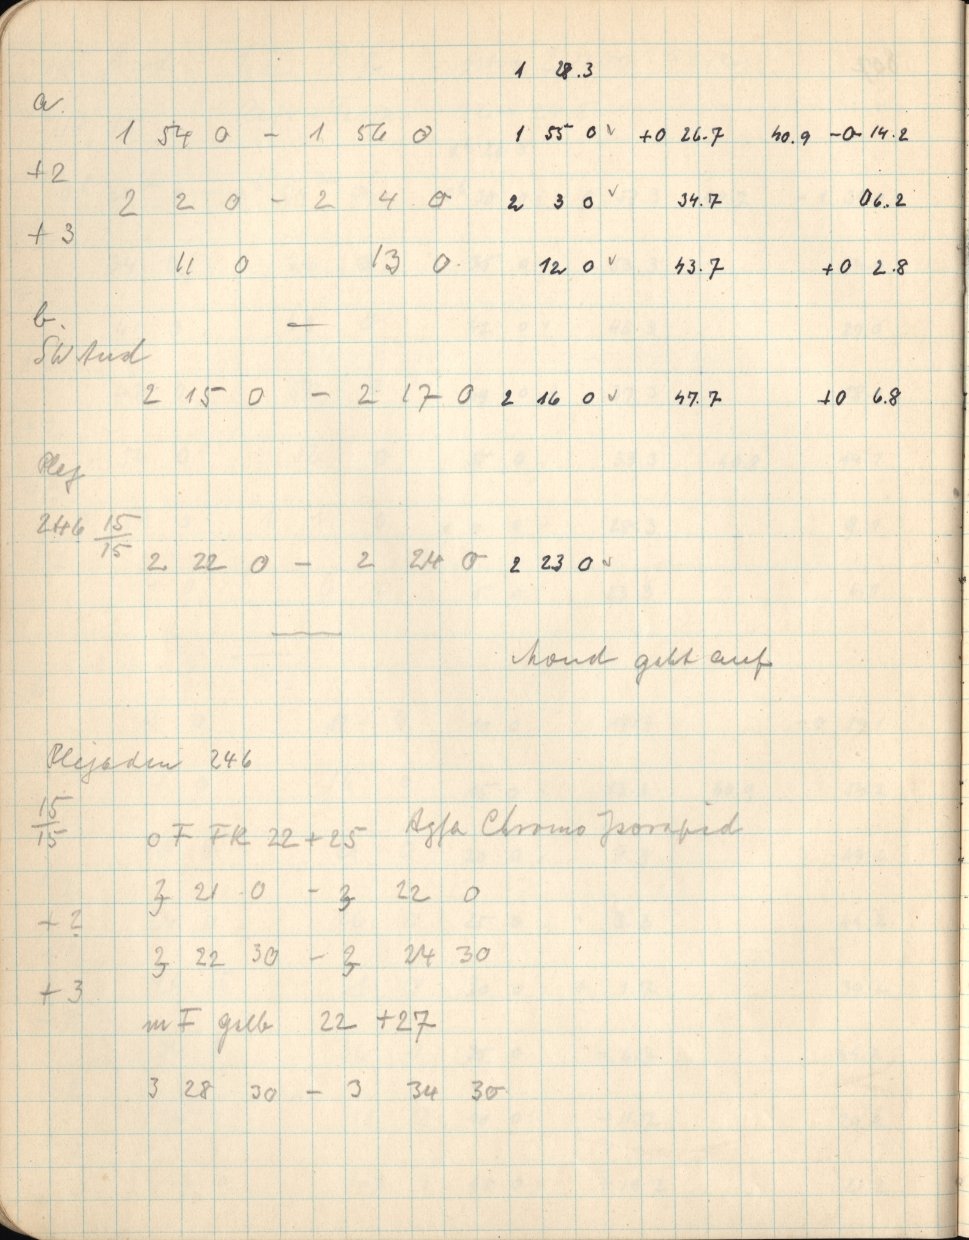 1 28.3
a.
1 54 0 - 1 56 0 1 55 0 √ +0 26.7 40.9 -0 14.2
+2
2 2 0 - 2 4 0 2 3 0 √ 34.7 06.2
+3
11 0 13 0. 12 0 √ 43.7 +0 2.8
b. —
SW And
2 15 0 - 2 17 0 2 16 0 √ 47.7 +0 6.8
Plej
246 15/15
2 22 0 - 2 24 0 2 23 0 √
Mond geht auf
Plejaden 246
15/15
o F FK 22+25 Agfa Chromo Isorapid
3 21 0 - 3 22 0
-2
3 22 30 - 3 24 30
+3
m F gelb 22 +27
3 28 30 - 3 34 30